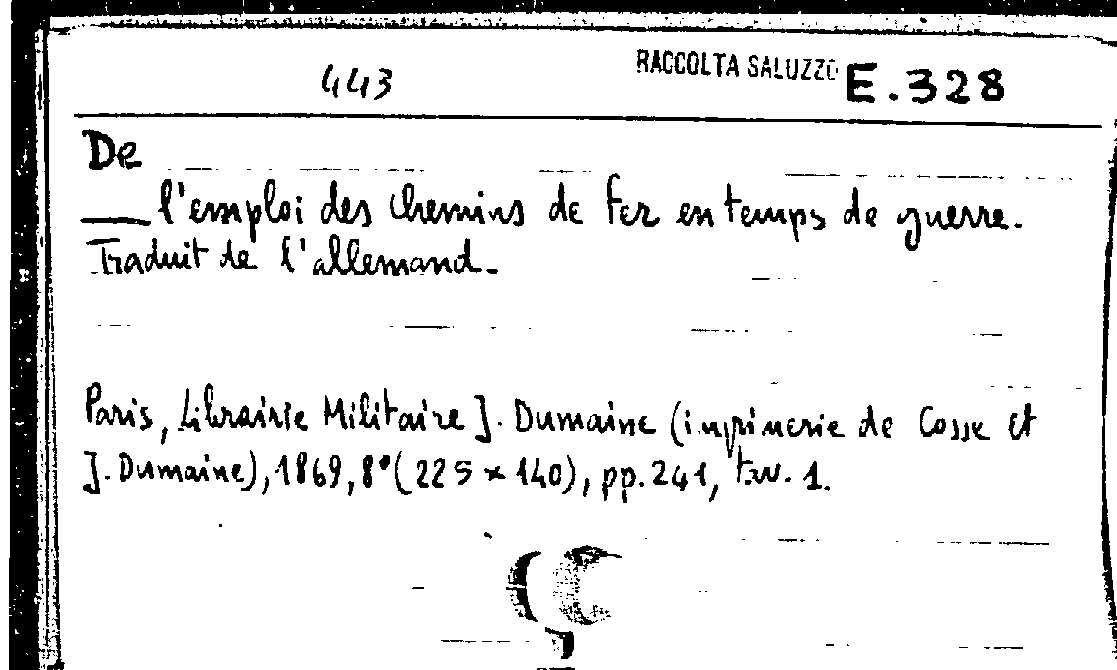 443 RACCOLTA SALUZZO E.328
De
l'emploi des chemins de fer en temps de guerre.
Traduit de l'allemand.
Paris, Librairie Militaire J. Dumaine (imprimerie de Cosse et
J. Dumaine), 1869, 8° (225 x 140), pp. 241, tav. 1.